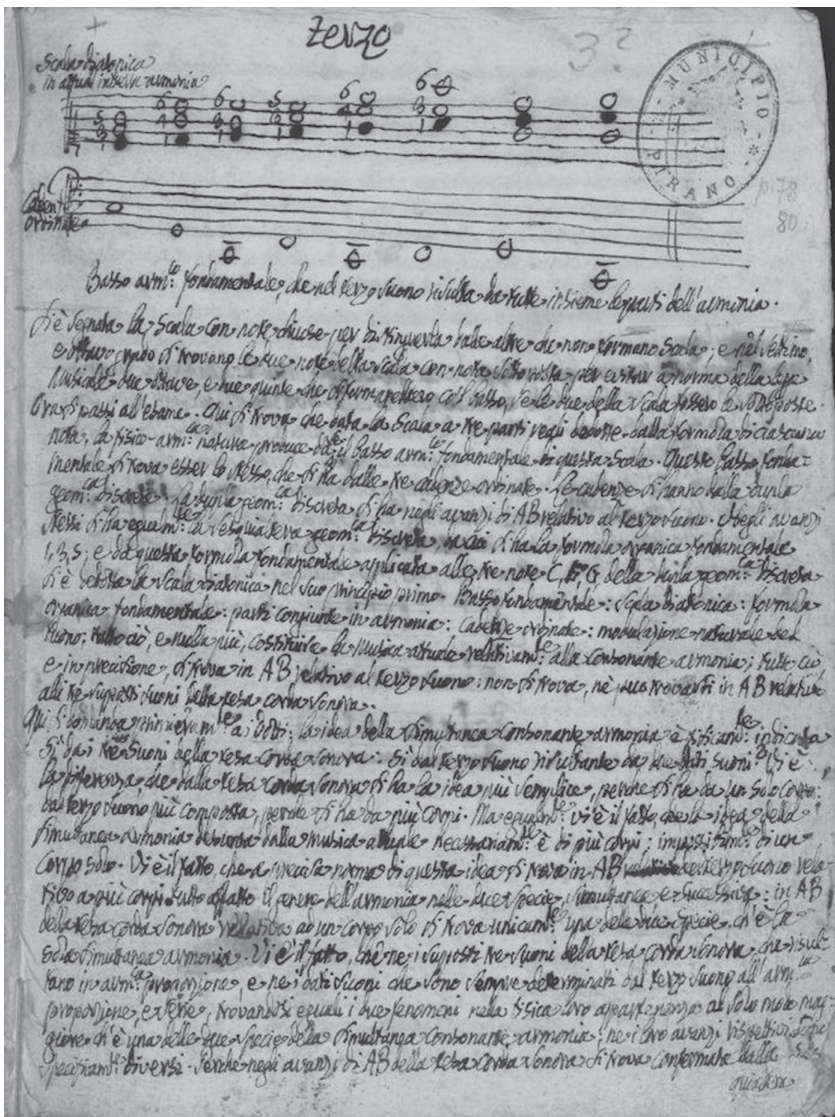 Terzo
3?
Scala diatonica
in attual intiera armonia
MUNICIPIO
PIRANO
78
80
Cadenze
ordinate
Basso arm.co fondamentale, che nel terzo suono risulta da tutte insieme le parti dell'armonia.
Si è segnata la Scala con note chiuse per distinguerla dalle altre che non formano Scala; e nel settimo,
e ottavo grado si trovano le due note della Scala con nota sottoposta per evitar a norma della legge
Musicale due ottave, e due quinte che si formarebbero col Basso, se le due della Scala fossero le sottoposte.
Ora si passi all'esame. Qui si trova che data la Scala a tre parti negli dedotte dalla formola di ciascuna
nota, la fisico-arm.ca natura produce il Basso arm.co fondamentale di questa Scala. Questo Basso fonda=
mentale si trova esser lo stesso, che si ha dalle tre cadenze ordinate. Le cadenze si hanno dalla dupla
geom.ca discreta. La dupla geom.ca discreta si ha negli avanzi di AB relativo al terzo suono. Negli avanzi
stessi si ha egualm.te la sesquialtera geom.ca discreta, si ha la formola organica fondamentale
1, 3, 5; e da questa formola fondamentale applicata alle tre note C, F, G della tripla geom.ca discreta
si è dedotta la Scala diatonica nel suo principio primo. Basso fondamentale: Scala diatonica: formola
organica fondamentale: parti congiunte in armonia: Cadenze ordinate: modulazione naturale del
tuono; tutto ciò, e nulla più, costituisce la Musica attuale relativam.te alla consonante armonia; tutto ciò,
e in precisione, si trova in AB relativo al terzo suono: non si trova, nè può trovarsi in AB relativo
alli tre supposti suoni della tesa corda sonora.
Qui si domanda ai Dotti: la idea della simultanea consonante armonia è fisicam.te indicata
sì dai tre suoni della tesa corda sonora: sì dal terzo suono risultante da due dati suoni. Vi è
la differenza, che dalla tesa corda sonora si ha la idea più semplice, perchè si ha da un solo Corpo:
dal terzo suono più composta, perchè si ha da più Corpi. Ma egualm.te vi è il fatto, che la idea della
simultanea armonia desunta dalla Musica attuale necessariam.te è di più corpi; di un
Corpo solo. Vi è il fatto, che a precisa norma di questa idea si trova in AB del terzo suono rela=
tivo a più corpi tutto affatto il genere dell'armonia nelle due specie, simultanea e successiva: in AB
della tesa corda sonora relativa ad un corpo solo si trova unicam.te una delle due specie, ch'è la
sola simultanea armonia. Vi è il fatto, che ne i supposti tre suoni della tesa corda sonora, che risul=
tano in arm.ca proporzione, e ne i dati suoni che sono sempre determinati dal terzo suono all'arm.ca
proporzione, trovandosi eguali i due fenomeni nella fisica loro appartenenza al solo modo mag=
giore ch'è una delle due specie della simultanea consonante armonia; ne i loro avanzi rispettivi sono
specificam.te diversi. Perchè negli avanzi di AB della tesa corda sonora si trova confermata dalla